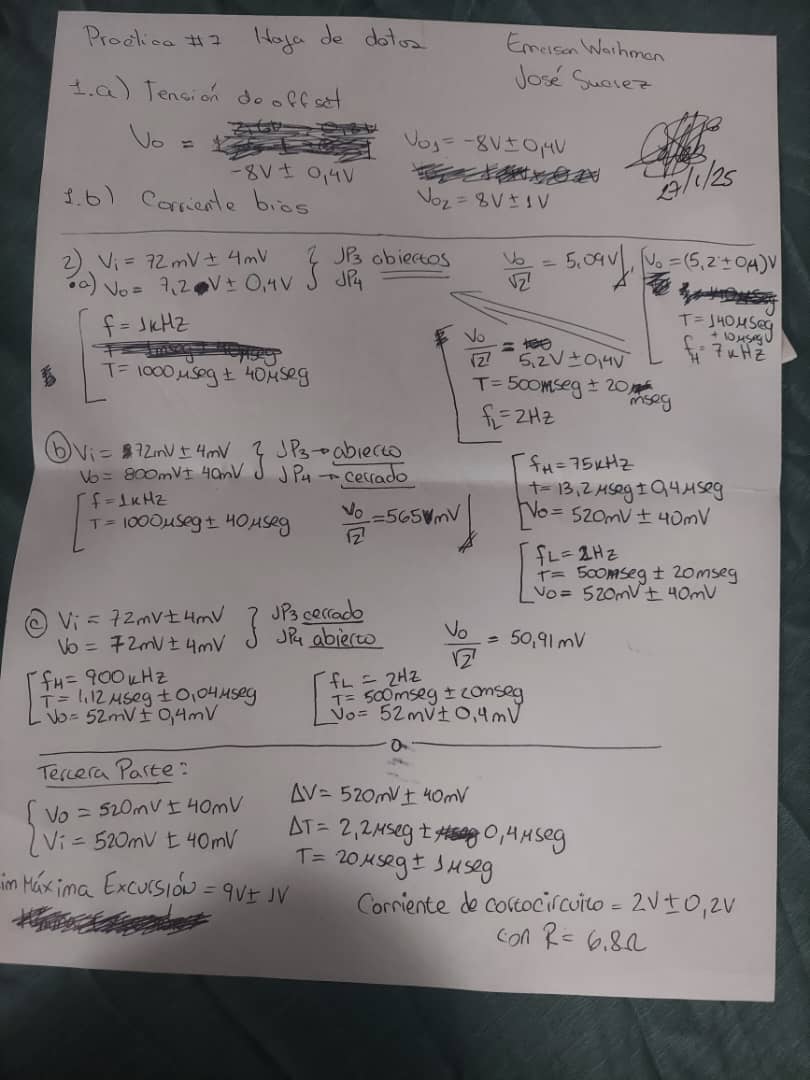 Practica #7 Hoja de datos
Emerson Wachman
José Suarez
1.a) Tensión de offset
Vo =
-8V ± 0,4V
Vo1 = -8V ± 0,4V
Vo2 = 8V ± 1V
27/1/25
1.b) Corriente bios
2) Vi = 72mV ± 4mV
a) Vo = 7,2V ± 0,4V
JP3 abiertos
JP4
Vo/√2 = 5,09V
Vo = (5,2 ± 0,4)V
T = 140µseg
± 10µseg
fH = 7kHz
f = 1kHz
T = 1000µseg ± 40µseg
Vo/√2 =
5,2V ± 0,4V
T = 500mseg ± 20
mseg
fL = 2Hz
b) Vi = 72mV ± 4mV
Vo = 800mV ± 40mV
JP3 → abierto
JP4 → cerrado
f = 1kHz
T = 1000µseg ± 40µseg
Vo/√2 = 565mV
fH = 75kHz
t = 13,2µseg ± 0,4µseg
Vo = 520mV ± 40mV
fL = 2Hz
T = 500mseg ± 20mseg
Vo = 520mV ± 40mV
c) Vi = 72mV ± 4mV
Vo = 72mV ± 4mV
JP3 cerrado
JP4 abierto
Vo/√2 = 50,91mV
fH = 900kHz
T = 1,12µseg ± 0,04µseg
Vo = 52mV ± 0,4mV
fL = 2Hz
T = 500mseg ± 20mseg
Vo = 52mV ± 0,4mV
Tercera Parte:
Vo = 520mV ± 40mV
Vi = 520mV ± 40mV
ΔV = 520mV ± 40mV
ΔT = 2,2µseg ± 0,4µseg
T = 20µseg ± 1µseg
Máxima Excursión = 9V ± 1V
Corriente de cortocircuito = 2V ± 0,2V
con R = 6,8Ω